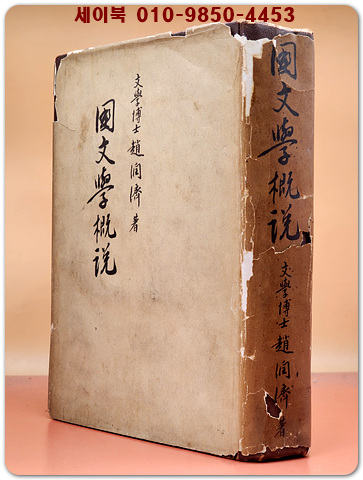 세이북 010-9850-4453
文學博士 趙润濟 著
國文學概说
國文學概说
文學博士 趙润濟 著